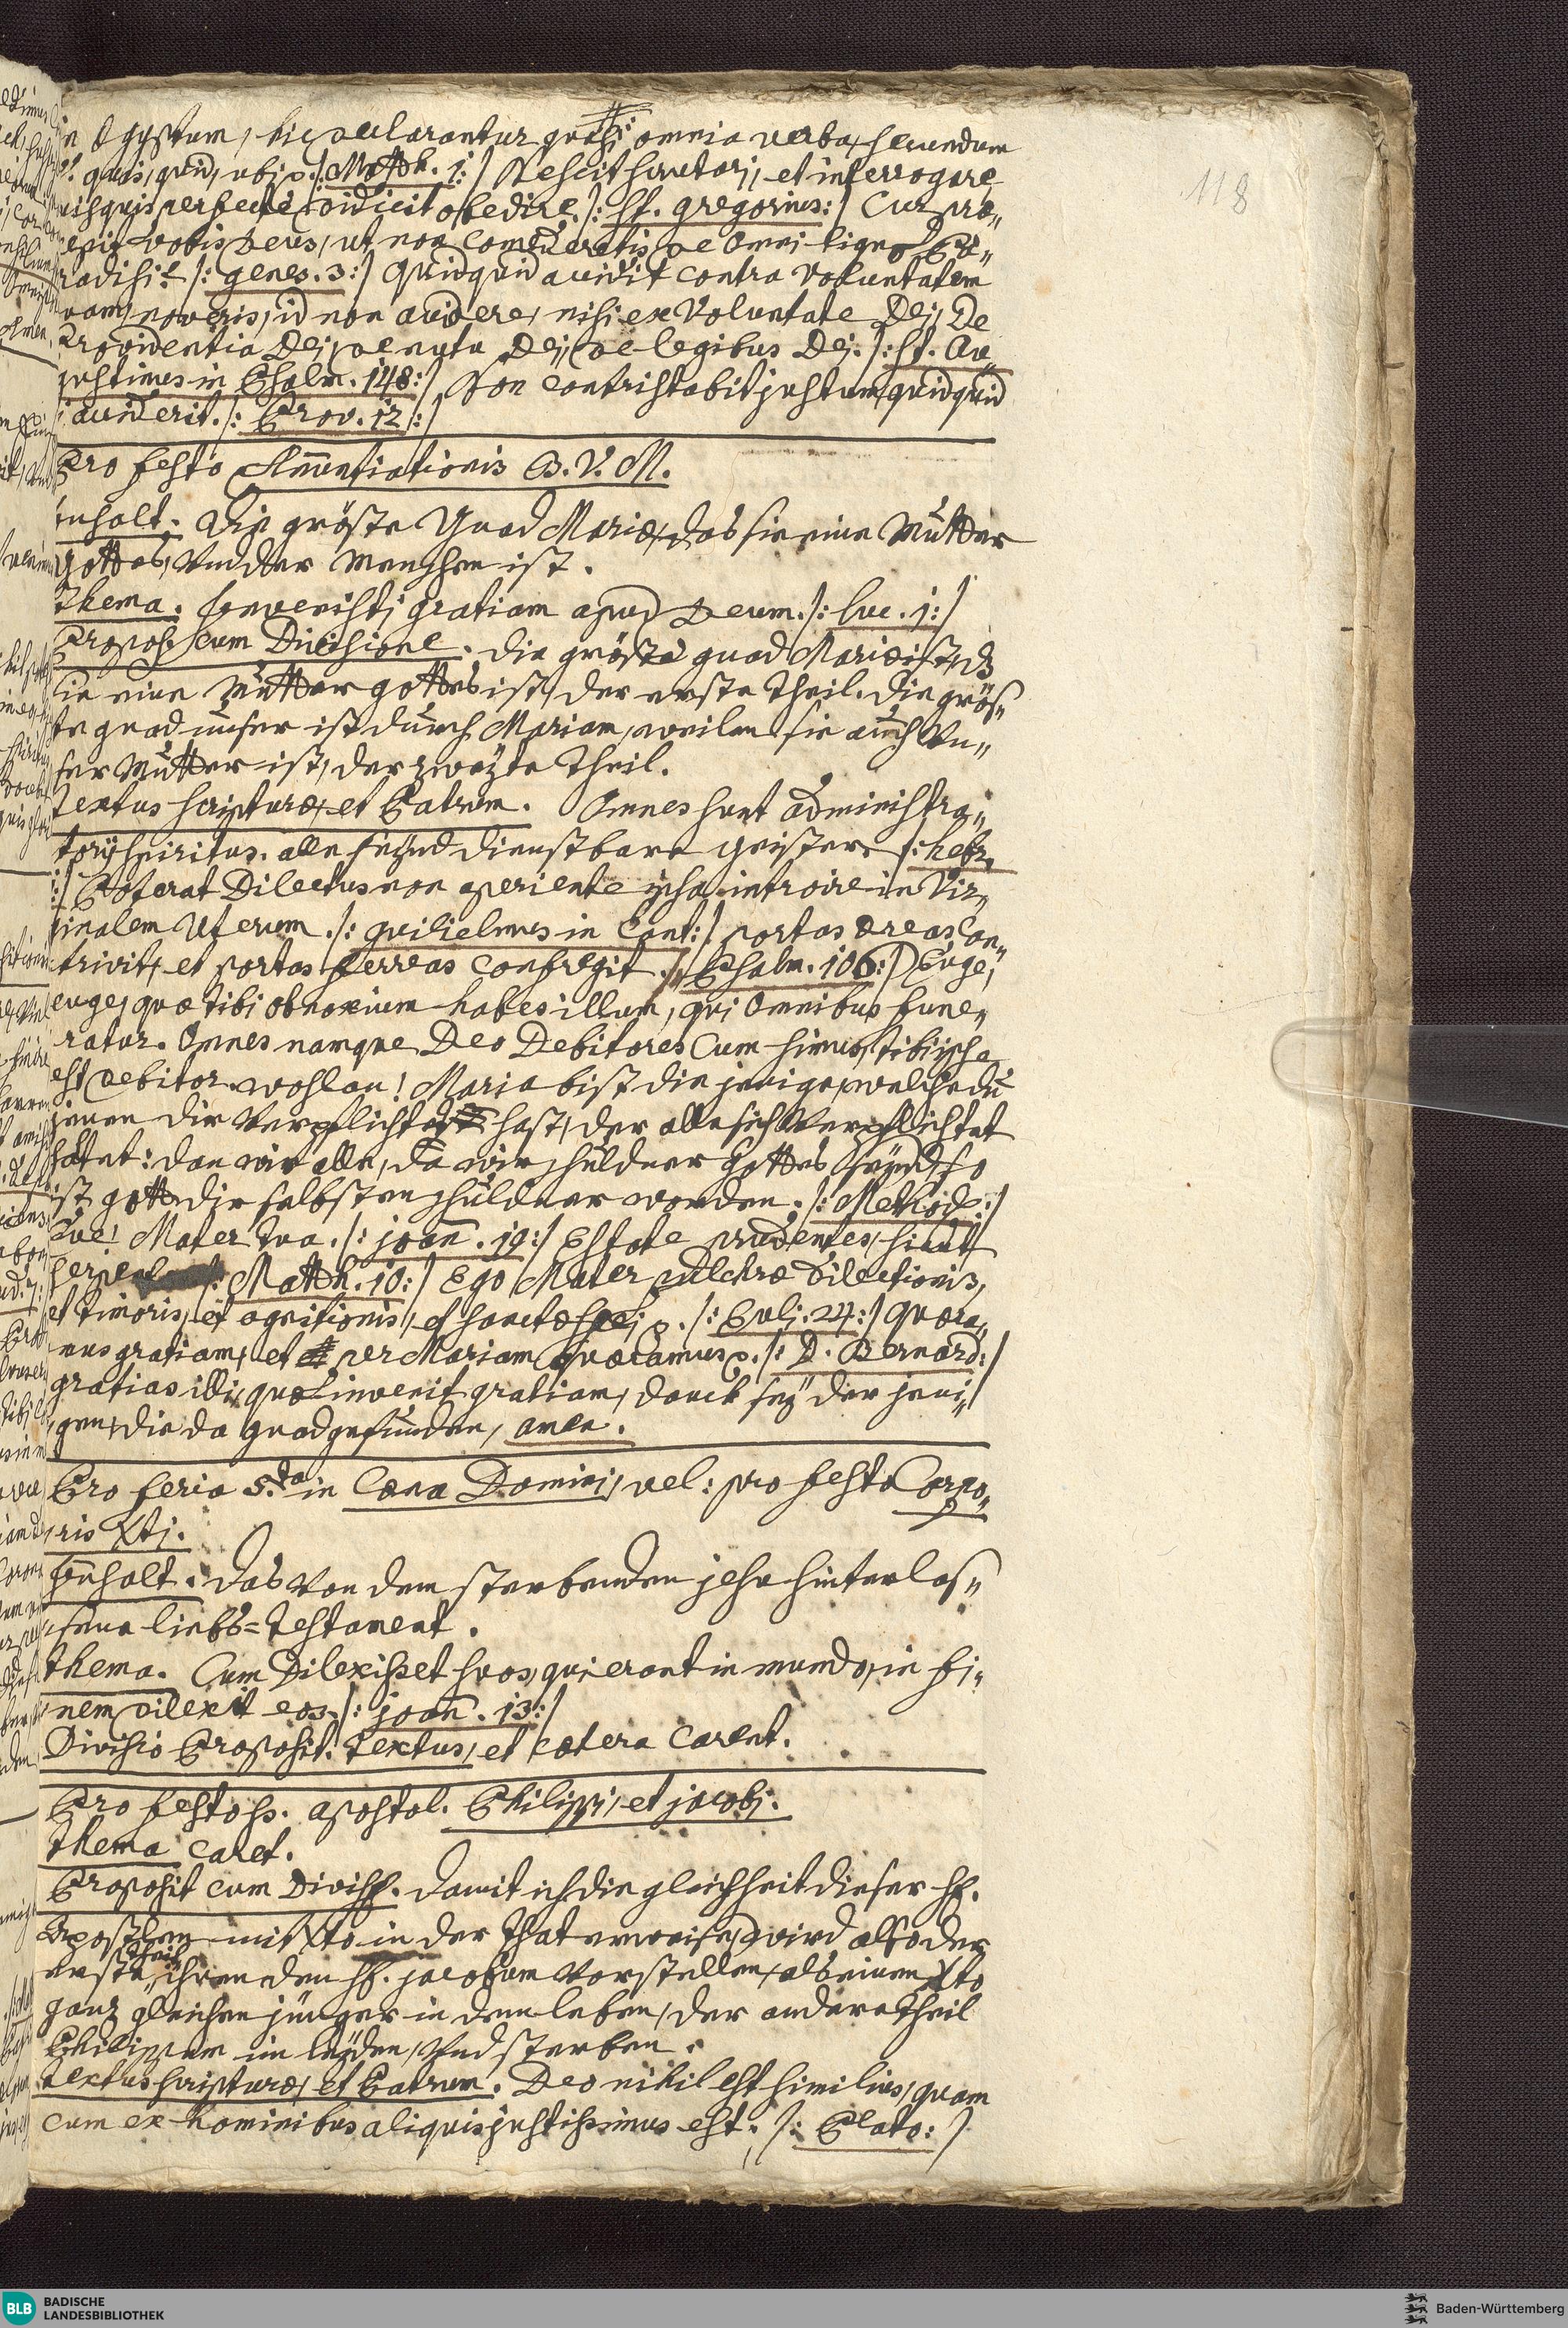 in Egyptum, hic declarantur quasi omnia verba, secundum
quis, quid, ubi p. /: Matth. 1:/ Nescit scrutari, et interrogare
quisquis perfecte didicit obedire. /: St. gregorius:/ Cur præ„
cepit vobis Deus, ut non comederetis de omni ligno Pa„
radisi? /: genes. 3:/ Quidquid accidit contra voluntatem
tuam, noveris, id non accidere, nisi ex Voluntate Dei, De
Providentia Dei, de nutu Dei, de legibus Dei. /: St. Au„
gustinus in Psalm. 148:/ Non contristabit justum, quidquid
ei acciderit. /: Prov. 12:/
Pro festo Annuntiationis B. V. M.
Inhalt. Die gröste Gnad Mariæ, das sie eine Mutter
Gottes, und der Menschen ist.
Thema. Invenisti gratiam apud Deum. /: luc. 1:/
Proposi. cum Divisione. Die gröste gnad Mariæ ist, ds
sie eine Mutter gottes ist, der erste Theil. Die grös„
te gnad unser ist durch Mariam, weilen sie auch Un„
ser Mutter ist, der zweÿte Theil.
Textus scripturæ, et Patrum. Omnes sunt administra„
torÿ spiritus. alle seÿnd dienstbare geister. /: hebr.
:/ Poterat Dilectus non aperiente ipsa introire in Vir„
ginalem Uterum. /: guilielmus in Cant:/ portas æreas con„
trivit, et portas ferreas confregit. /: Psalm. 106:/ Euge,
euge, quæ tibi obnoxium habes illum, qui omnibus fune„
ratur. Omnes namque Deo Debitores cum simus, tibi ipse
est debitor. wohlan! Maria bist die jenige, welche du
jenen dir Verpflichtet hast, der alle sich Verpflichtet
hatet: dan wir alle, da wir schuldner Gottes seynd, so
ist gott dir selbsten schuldner worden. /: Method:/
Ecce! Mater tua. /: joan̄. 19:/ Estote prudentes, sicut
serpe /: Matth. 10:/ Ego Mater pulchræ dilectionis,
et timoris, et agnitionis, et sanctæ spei p. /: Ecli: 24:/ quæra„
mus gratiam, et per Mariam quæramus p. /: D. Bernard:/
gratias illi, quæ invenit gratiam, danck seÿ der jeni„
gen, die da gnad gefunden, amen.
Pro feria 5.ta in Cœna Domini, vel: pro festo Corpo„
ris Xti.
Inhalt. Das Von dem sterbenden jesu hinterlas„
sene liebs=Testament.
Thema. Cum Dilexisset suos, qui erant in mundo, in fi„
nem dilexit eos. /: joan̄. 13:/
Divisio Proposit. Textus, et cætera carent.
Pro festo ss. apostol. Philippi, et jacobi.
Thema caret.
Proposit cum Divisi. Damit ich die gleichheit dieser hh.
Apostlen mit Xto in der that erweise, wird also der
erste theil ihnen den hh. jacobum Vorstellen, als einen Xto
ganz gleichen jünger in dem leben, der andere Theil
Philippum im leÿden, Und sterben.
Textus scripturæ, et Patrum. Deo nihil est similius, quam
cum ex hominibus aliquis justissimus est. /: Plato:/
118
BLB BADISCHE
LANDESBIBLIOTHEK
Baden-Württemberg